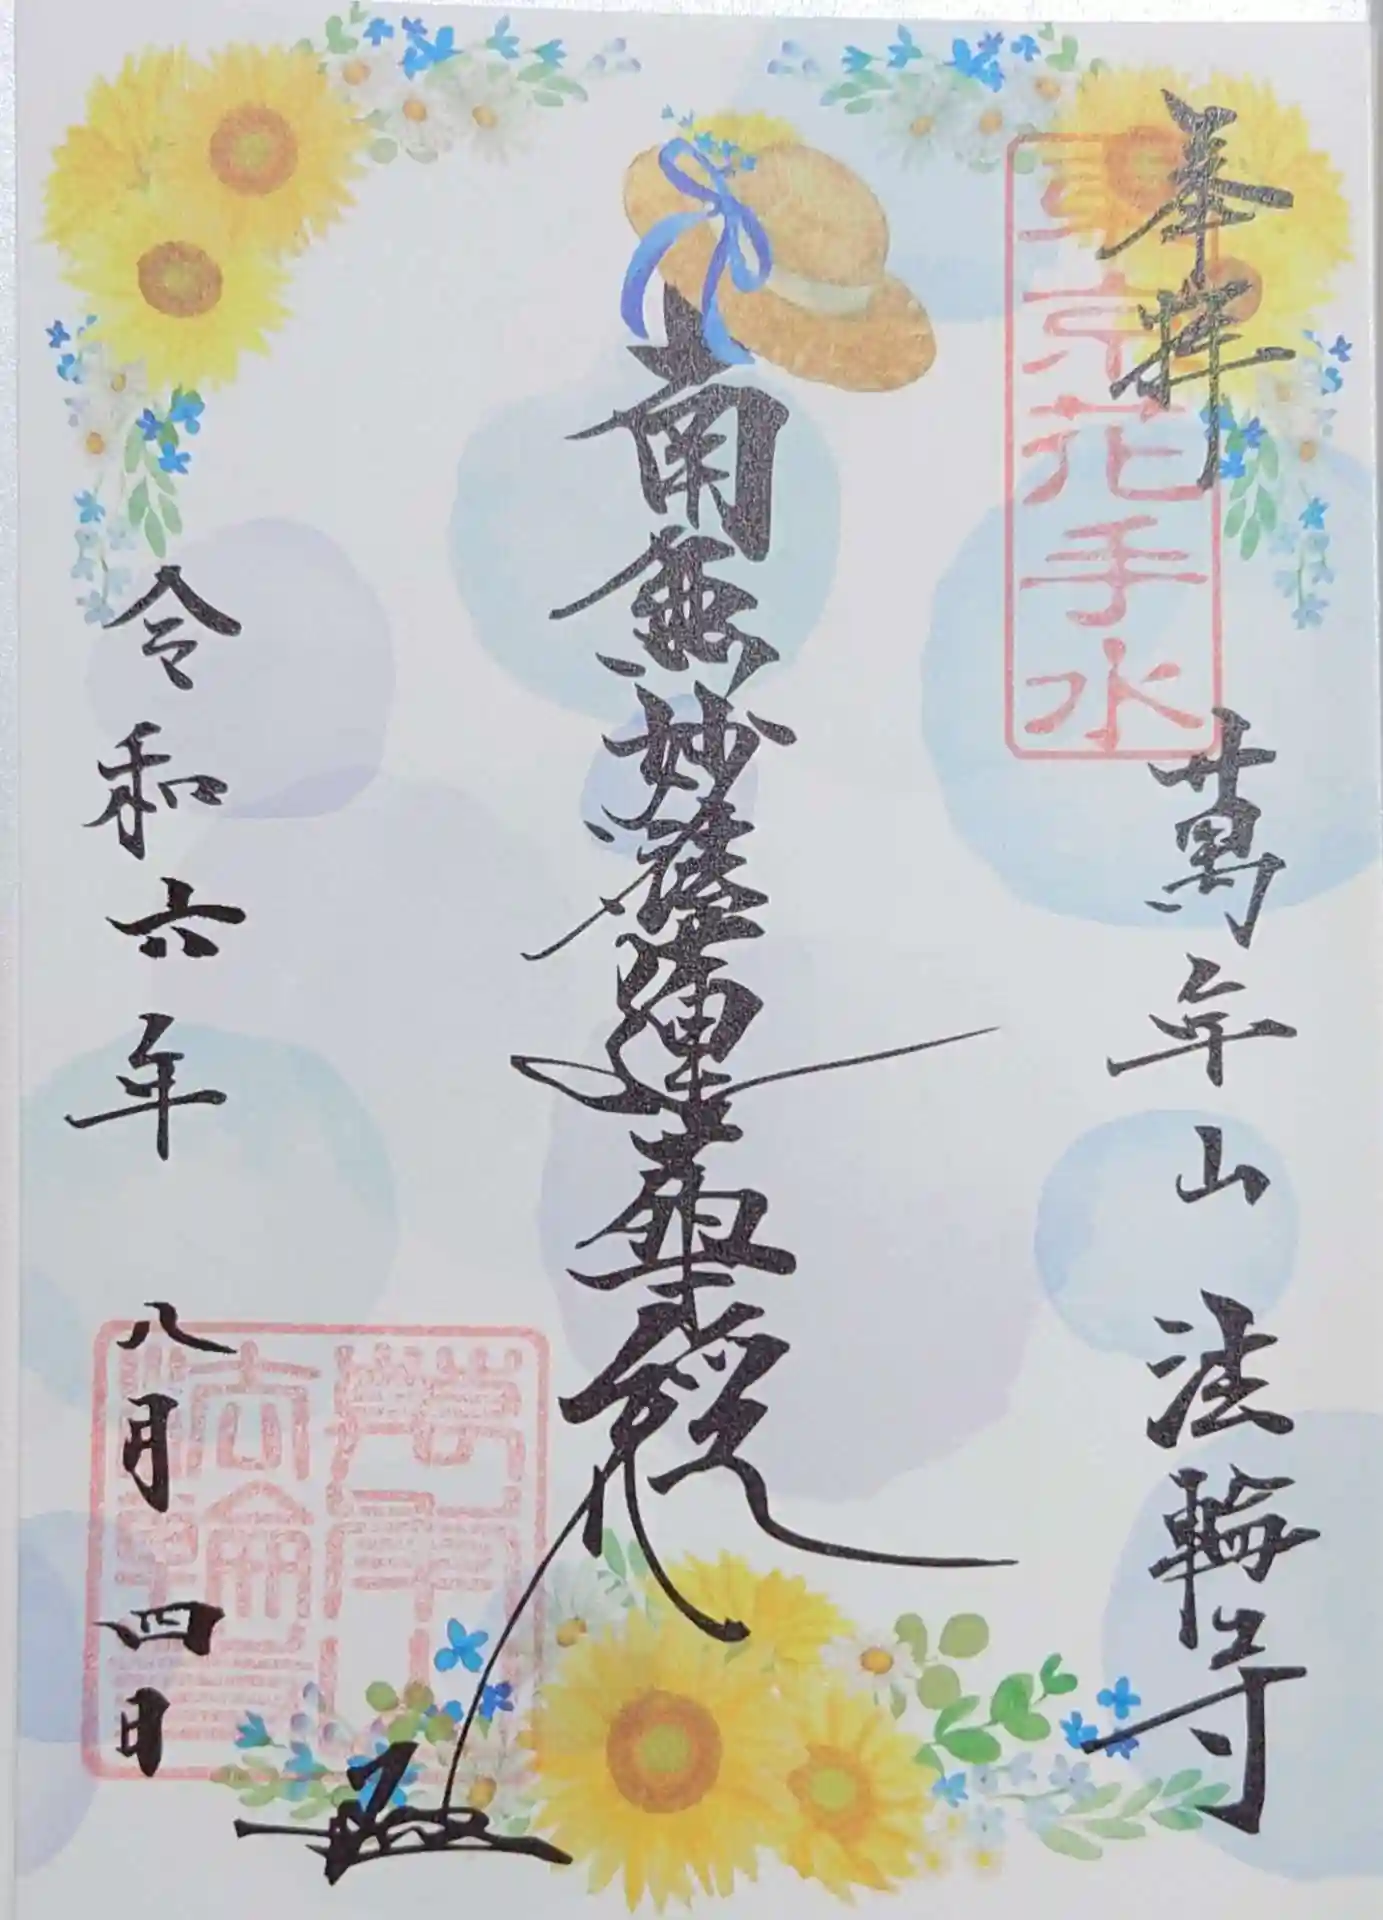 奉拝
東京花手水
萬年山 法輪寺
南無妙法蓮華経
令和六年 八月四日